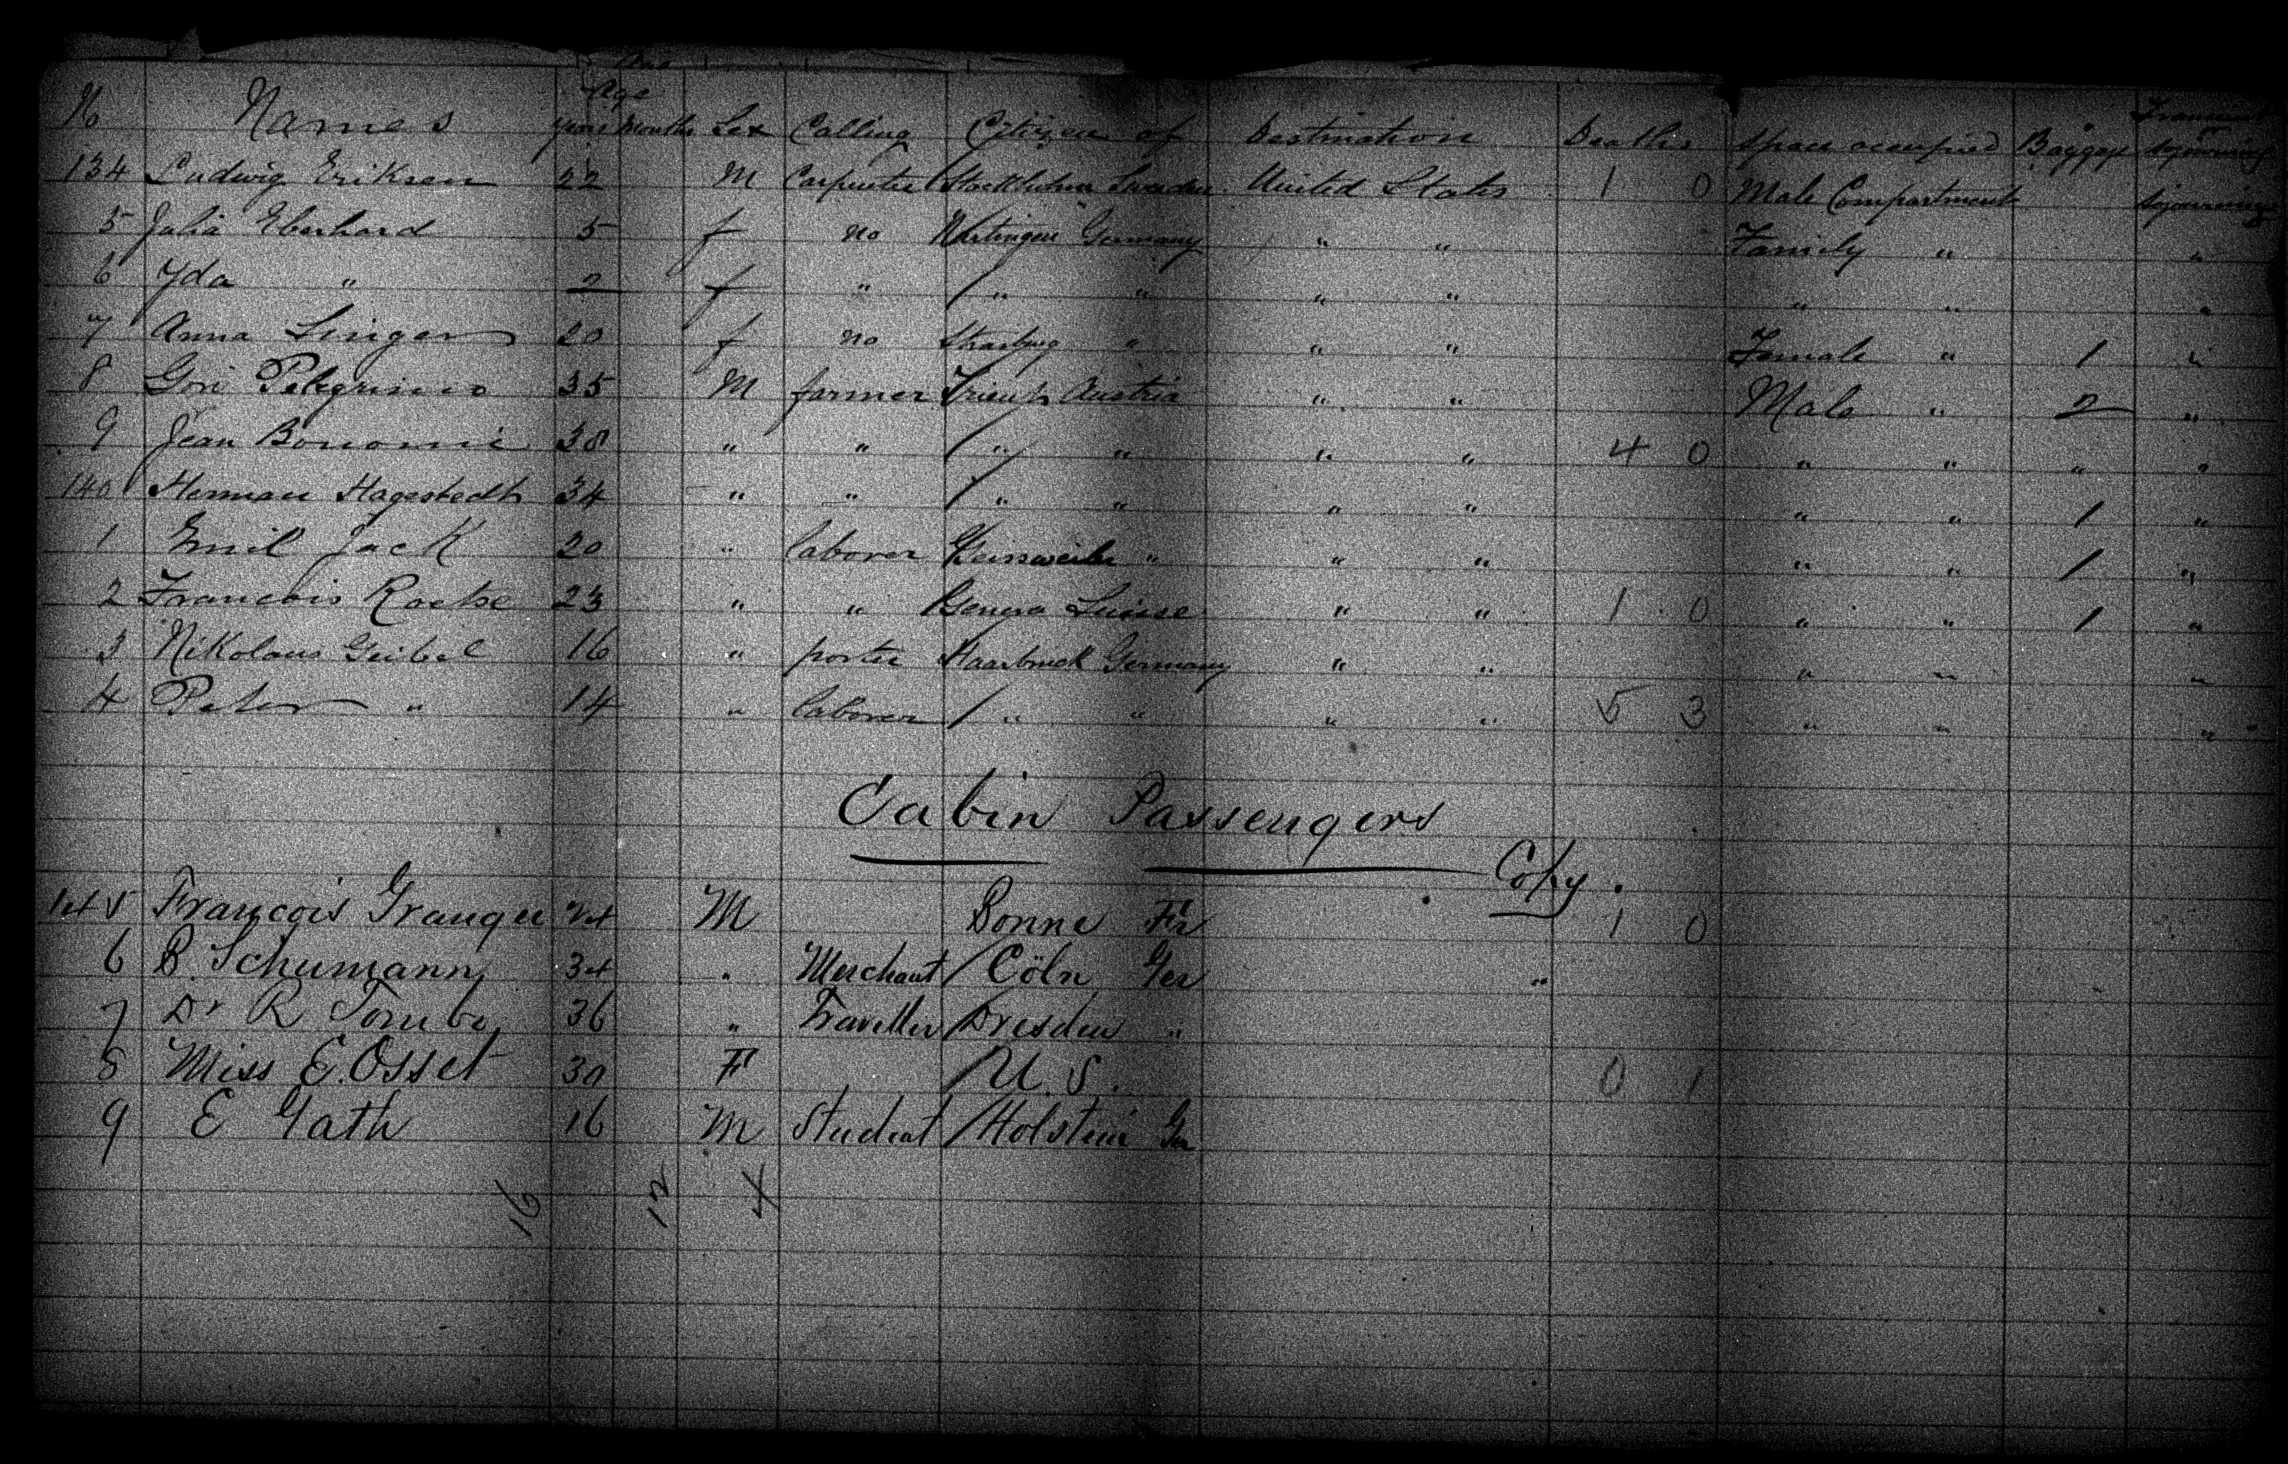 Age
No Names years months Sex Calling Citizen of Destination Deaths space occupied Baggage Transient or sojourning
134 Ludwig Eriksen 22 M Carpenter Stockholm Sweden United States 1 0 Male Compartment sojourning
5 Julia Eberhard 5 f no Germany " " Family " "
6 Yda " 2 f " / " " " " " " "
7 Anna Singer 20 f no Strasburg " " " Female " 1 "
8 Gori Pelegrino 35 M farmer Austria " " Male " 2 "
9 Jean Bonomi 38 " " / " " " " 4 0 " " " "
140 Herman Hagestedt 34 " " / " " " " " " 1 "
1 Emil Jack 20 " laborer " " " " " 1 "
2 Francois 23 " " Geneva Suisse " " 1 0 " " 1 "
3 Nikolaus Geibel 16 " porter Germany " " " " "
4 Peter " 14 " laborer / " " " " 5 3 " " "
Cabin Passengers
Copy.
145 François 24 M Bonne Fr 1 0
6 B. Schumann 34 " Merchant / Cöln Ger "
7 Dr R 36 " Traveller / Dresden "
8 Miss E. Osset 30 F / U. S. 0 1
9 E Gath 16 M Student / Holstein Ger
16 12 4